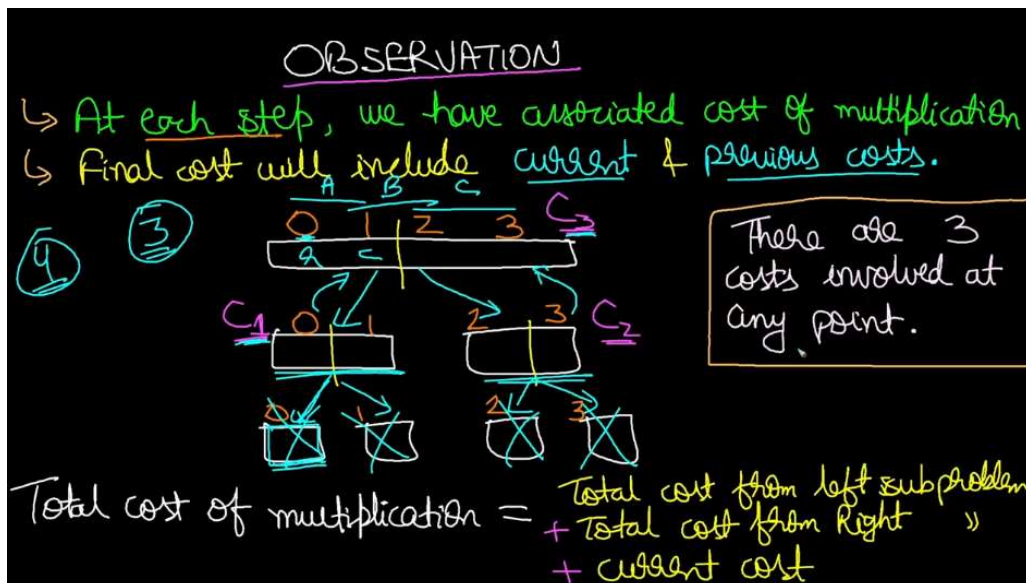 OBSERVATION
↳ At each step, we have associated cost of multiplication
↳ Final cost will include current & previous costs.
A B C
4 3 0 1 2 3 C3
There are 3
costs involved at
any point.
C1 0 1 2 3 C2
0 1 2 3
Total cost of multiplication = Total cost from left subproblem
+ Total cost from Right "
+ current cost